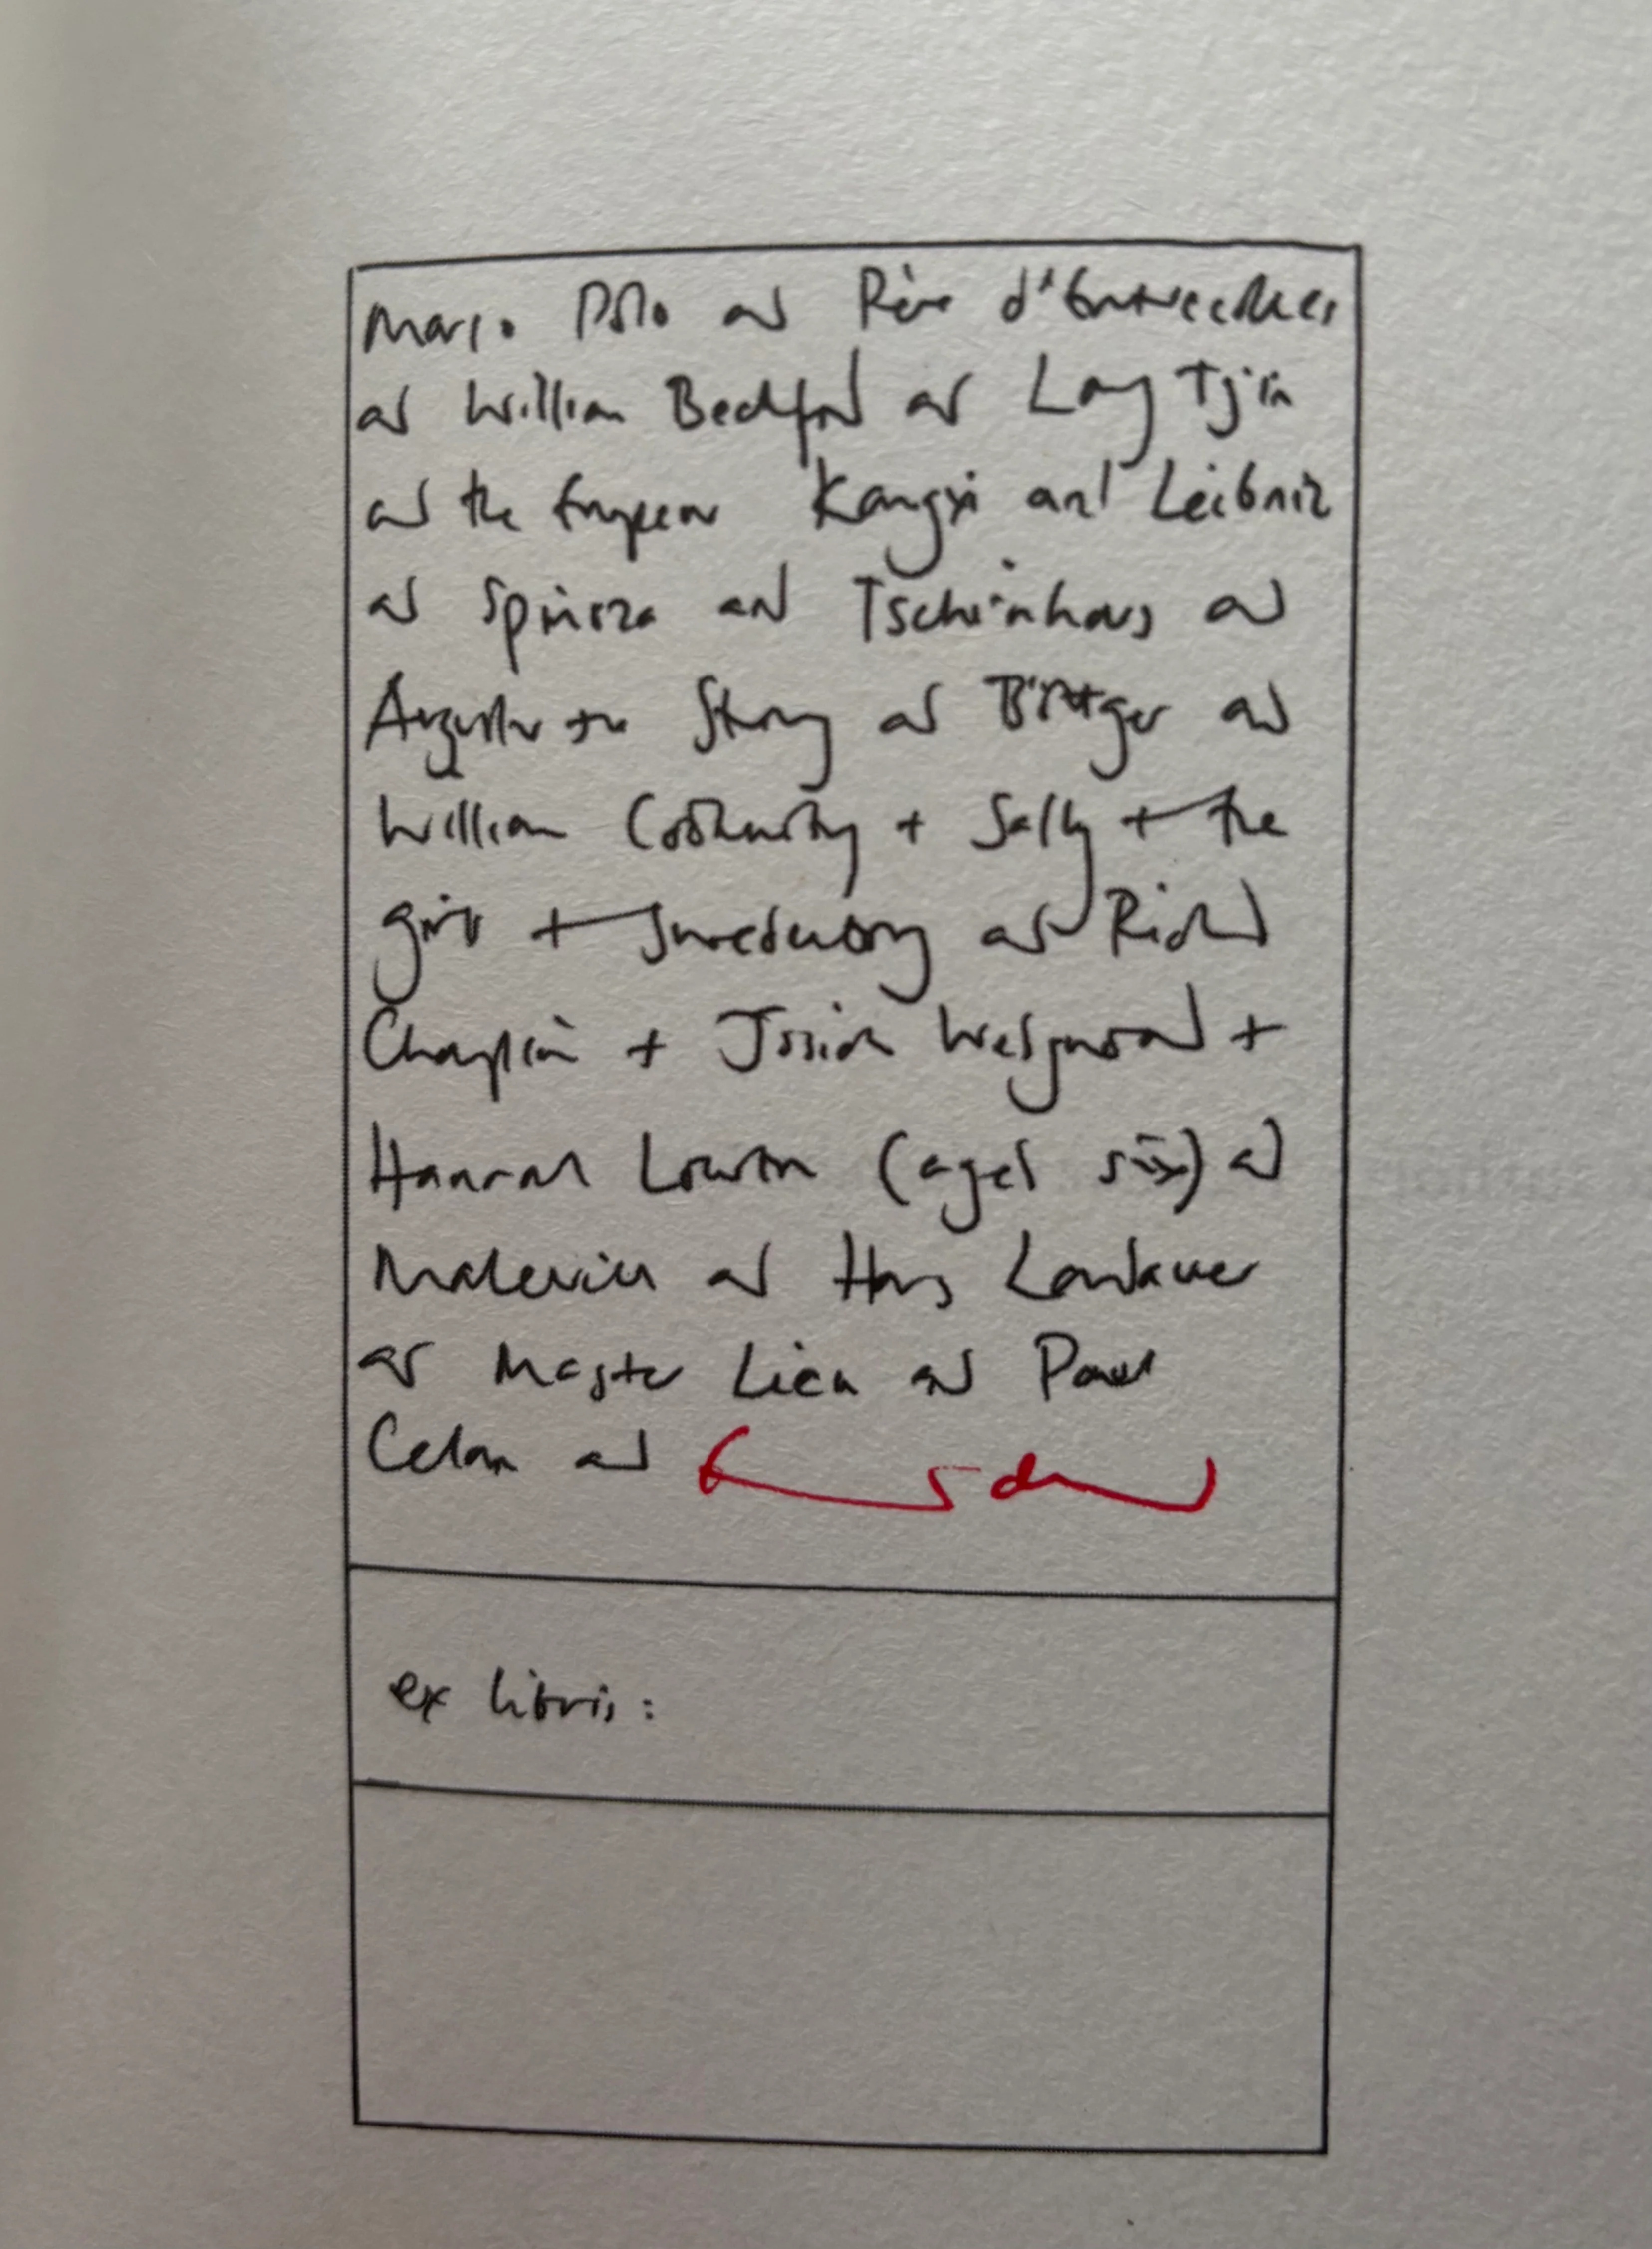 Marco Polo and Père d'Entrecolles
and William Beckford and Lang Tjin
and the Emperor Kangxi and Leibniz
and Spinoza and Tschirnhaus and
Augustus the Strong and Böttger and
William Cookworthy + Sally + the
girls + Swedenborg and Richard
Champion + Josiah Wedgwood +
Hannah Lowton (aged six) and
Malevich and Hans Landauer
and Master Lieu and Paul
Celan and
ex libris: